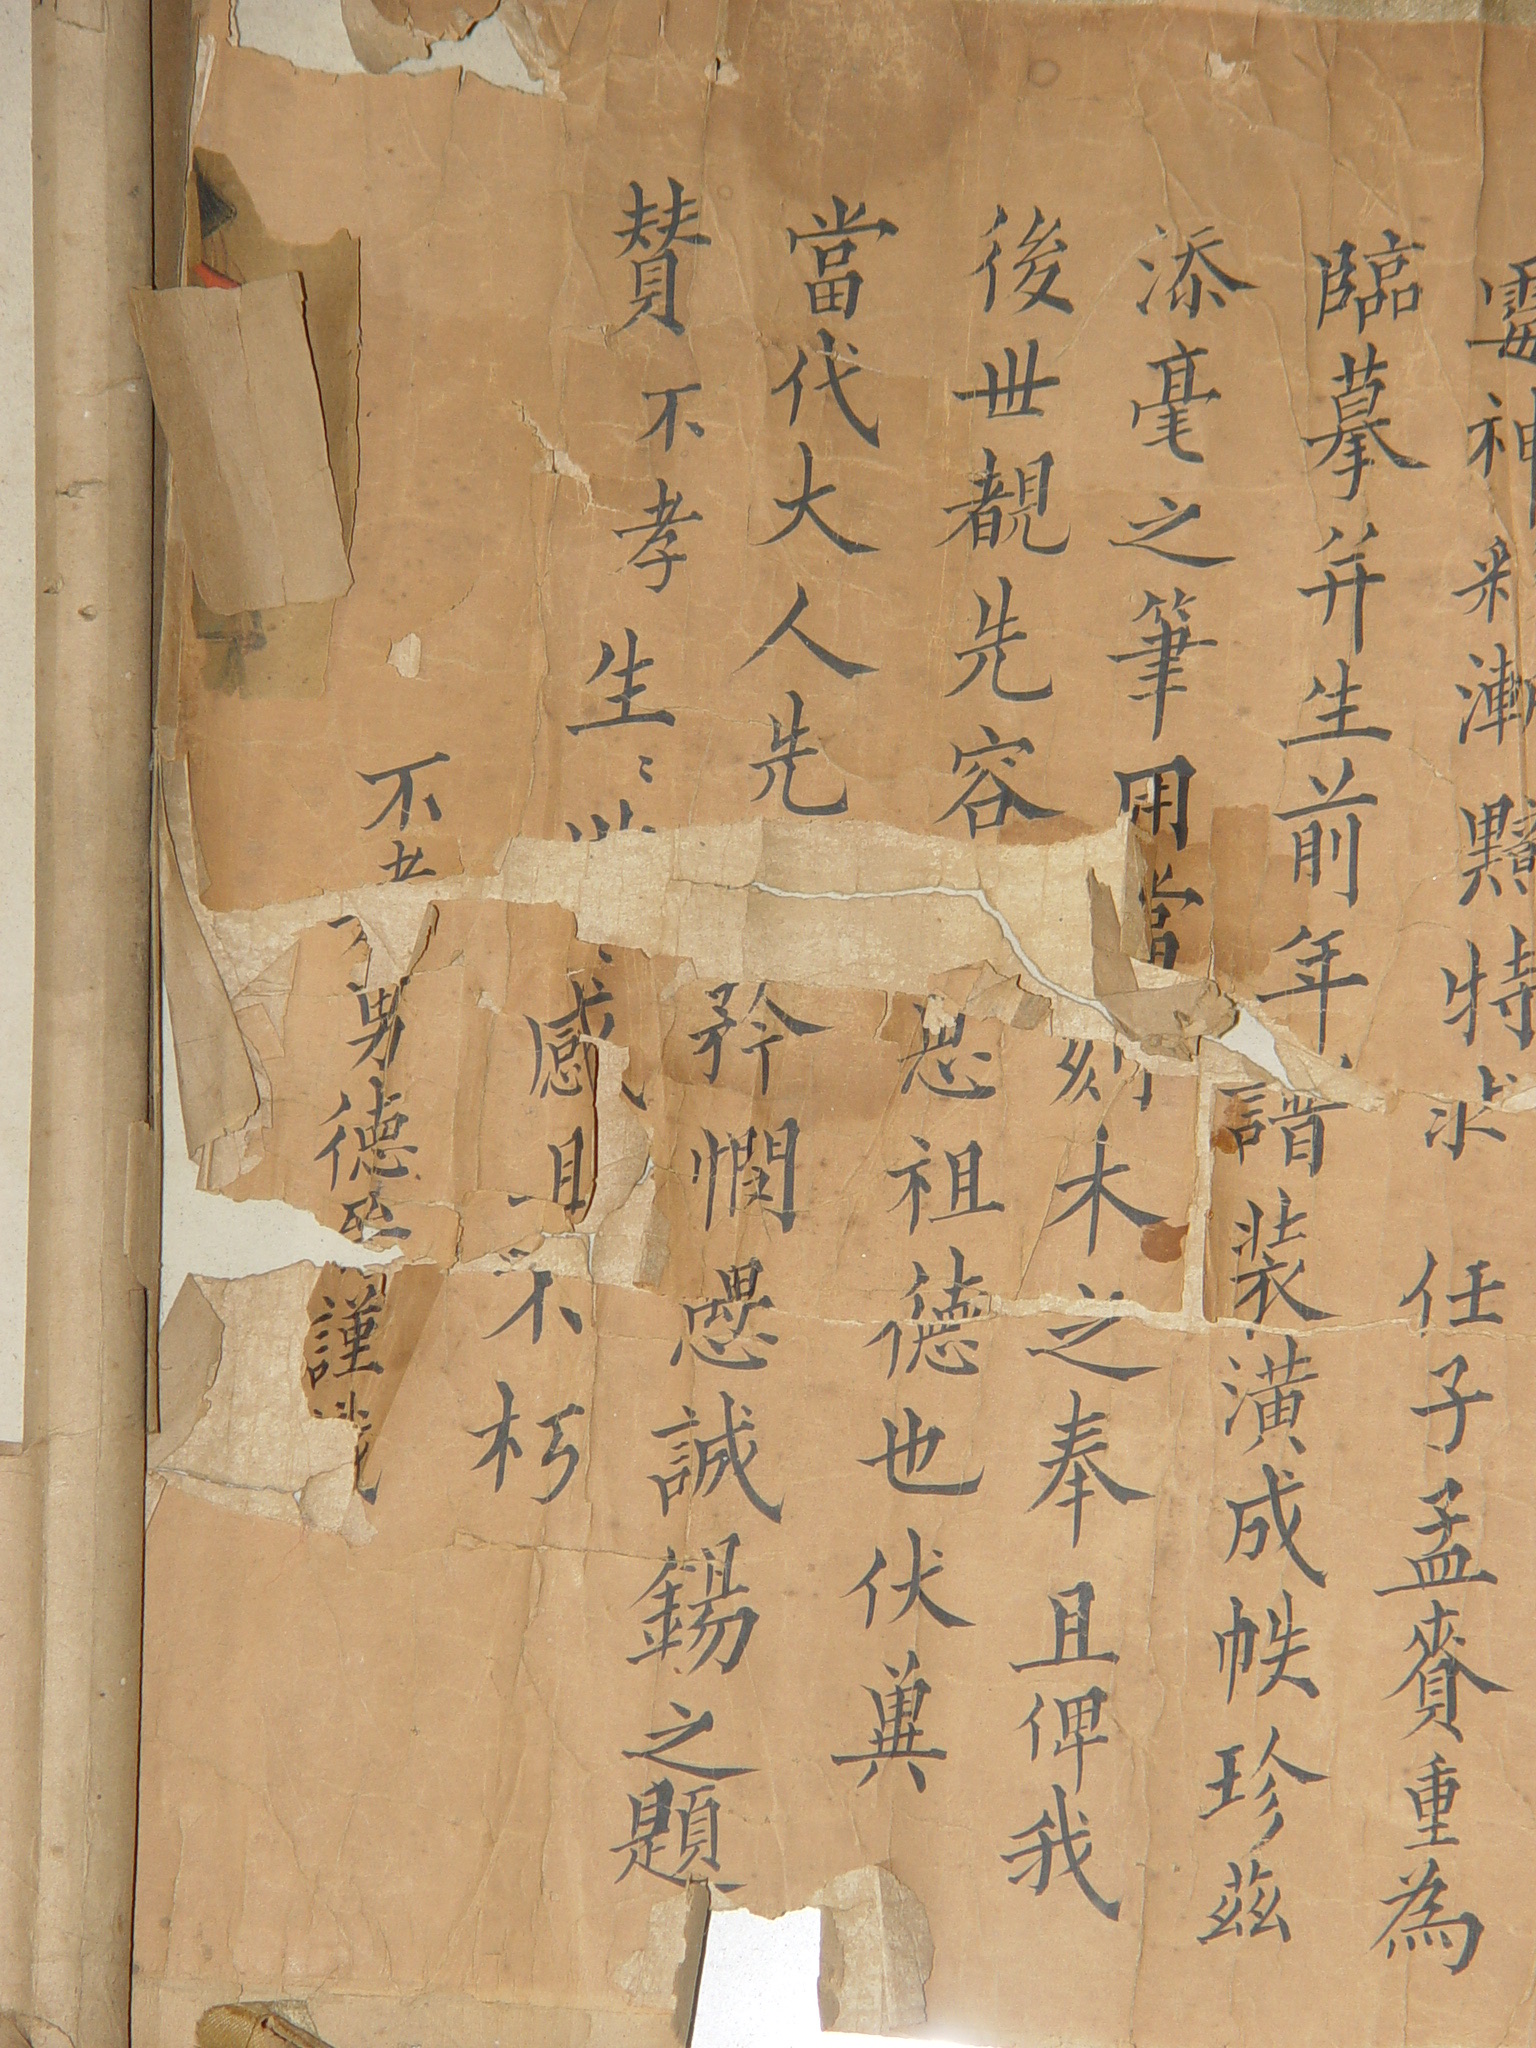 神彩漸黯特求 任子孟賚重為
臨摹并生前年譜裝潢成帙珍茲
添毫之筆用當刻木之奉且俾我
後世覩先容 思祖德也伏冀
當代大人先 矜憫愚誠錫之題
賛不孝生生 感且不朽
不孝男德 謹識